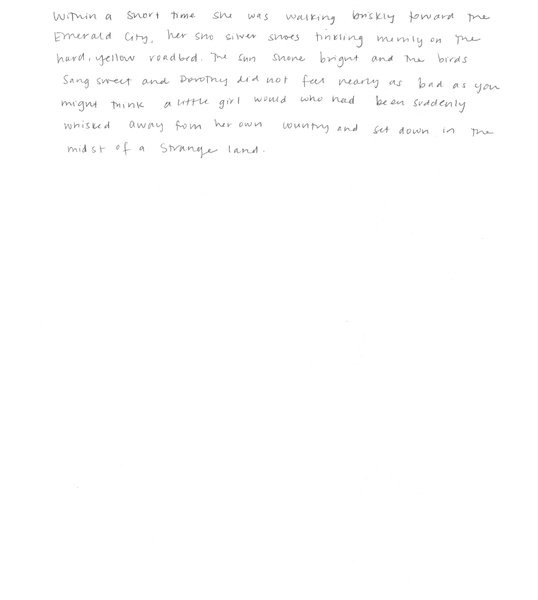 Within a short time she was walking briskly toward the
Emerald City, her sho silver shoes tinkling merrily on the
hard, yellow roadbrd. The sun shone bright and the birds
Sang sweet and Dorothy did not feel nearly as bad as you
might think a little girl would who had been suddenly
whisked away fom her own country and set down in the
midst of a Strange land.